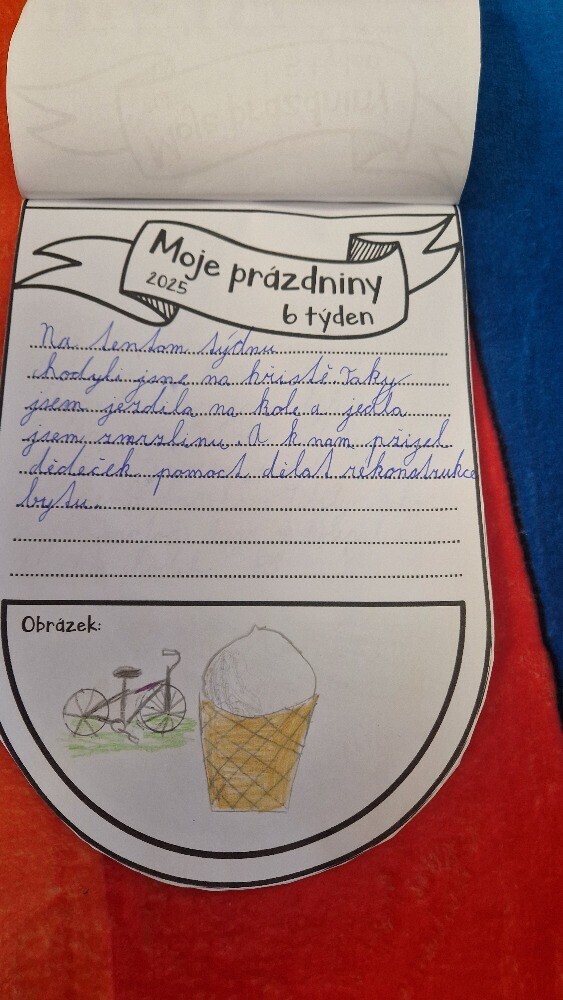 Moje prázdniny
2025
6 týden
Na tentom týdnu
chodyli jsme na hřistě Taky
jsem jezdila na kole a jedla
jsem zmrzlinu. A k nam přizel
dědeček pomoct dělat rekonstrukce
bytu.
Obrázek: